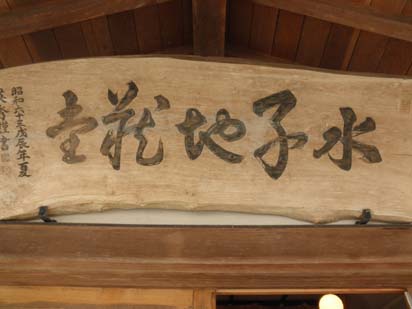 水子地蔵堂
昭和六十三戊辰年夏